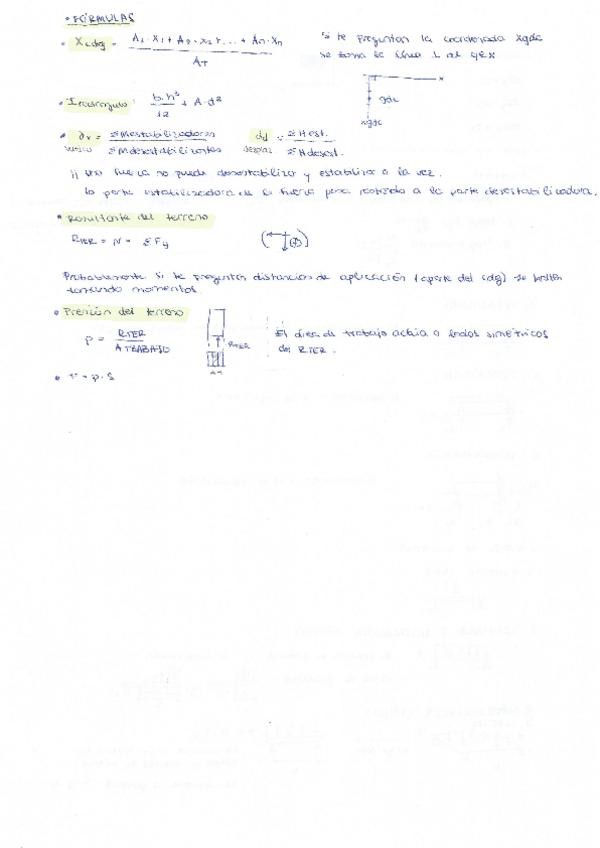 • FÓRMULAS
• Xcdg = A1·X1 + A2·X2 + ... + An·Xn / AT
Si te preguntan la coordenada Xgdc
se toma la línea ⊥ al eje x
x
gdc
xgdc
• Irectángulo: b·h³ / 12 + A·d²
• γv = ΣMestabilizadoras / ΣMdesestabilizantes
vuelco
γd = ΣH est. / ΣH desest.
desplaz.
¡¡ Una fuerza no puede desestabilizar y estabilizar a la vez.
La parte estabilizadora de la fuerza pasa restando a la parte desestabilizadora.
• Resultante del terreno
RTER = N = ΣFy
(+)
Probablemente si te preguntan distancias de aplicación (aparte del cdg) se hallen
tomando momentos.
• Presión del terreno
P = RTER / ATRABAJO
RTER
AT
El área de trabajo actúa a lados simétricos
de RTER.
• T = p·s